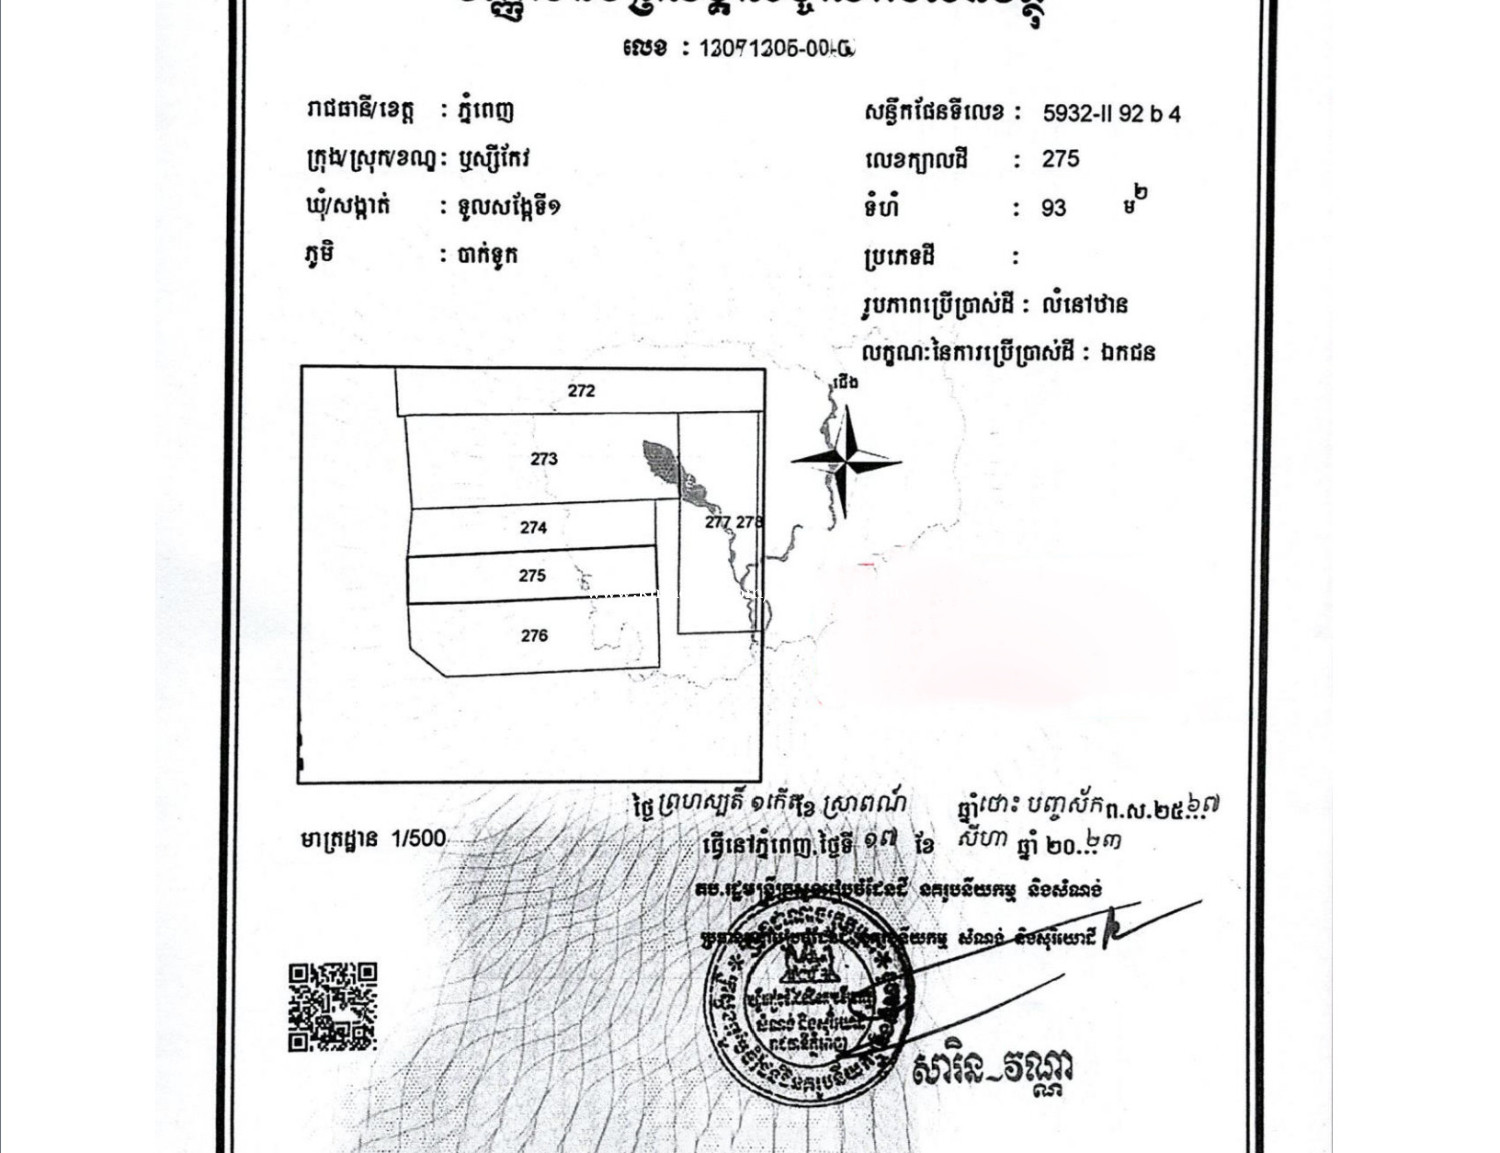 លេខ :
រាជធានី/ខេត្ត : ភ្នំពេញ
សន្លឹកផែនទីលេខ : 5932-II 92 b 4
ក្រុង/ស្រុក/ខណ្ឌ : ឬស្សីកែវ
លេខក្បាលដី : 275
ឃុំ/សង្កាត់ : ទួលសង្កែទី១
ទំហំ : 93 ម២
ភូមិ : បាក់ទូក
ប្រភេទដី :
រូបភាពប្រើប្រាស់ដី : លំនៅឋាន
លក្ខណៈនៃការប្រើប្រាស់ដី : ឯកជន
ជើង
272
273
274
277 278
275
276
ថ្ងៃ ព្រហស្បតិ៍ ១កើត ខែ ស្រាពណ៍ ឆ្នាំថោះ បញ្ចស័ក ព.ស.២៥៦៧
មាត្រដ្ឋាន 1/500
ធ្វើនៅភ្នំពេញ,ថ្ងៃទី ១៧ ខែ សីហា ឆ្នាំ ២០២៣
តប.រដ្ឋមន្ត្រីក្រសួងរៀបចំដែនដី នគរូបនីយកម្ម និងសំណង់
សំណង់ និងសុរិយោដី
សារិន វណ្ណា